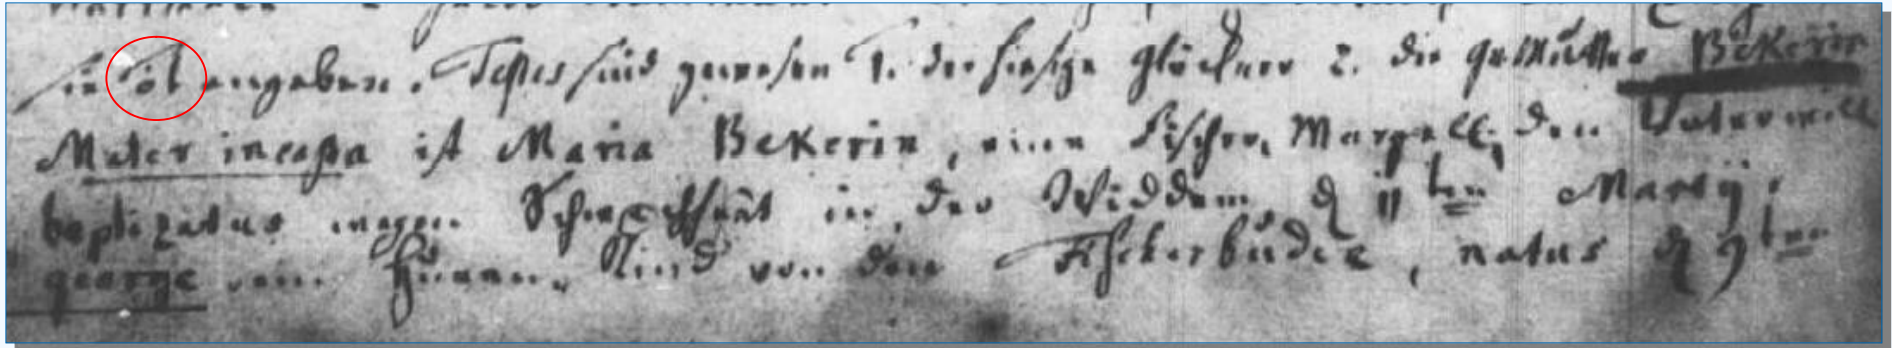 sie öt angeben. Testes sind gewesen 1. der hiesige Glöckner 2. die Großmutter Bekerin
Mater incesta ist Maria Bekerin, eine Fischer Margell, den Vater will
baptizatus wegen Schwachheit in der Widdem d 11ten Martij.
george ein Huren Kind von den Fischerbude, natus d 9ten